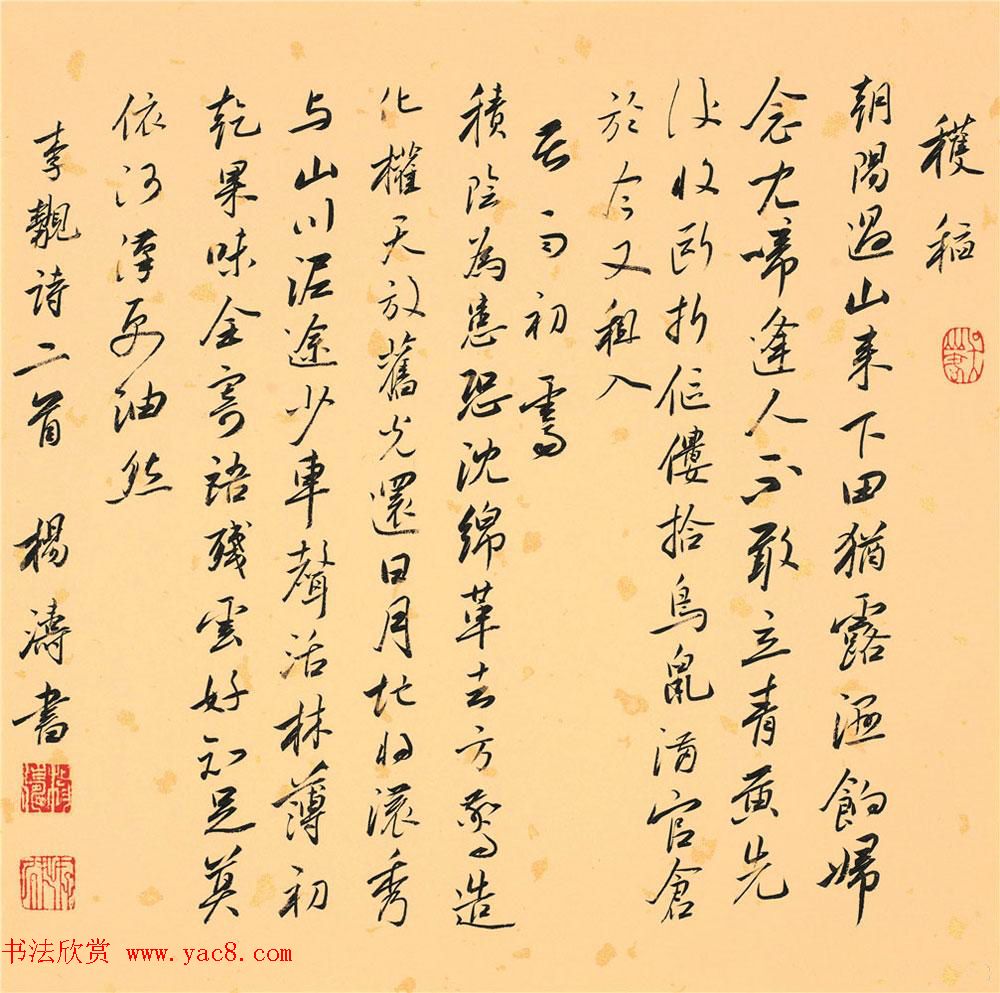 穫稻
朝陽過山来下田猶露濕餉婦
念兒啼逢人不敢立青黄先
後收断折伛僂拾鳥鼠滿官倉
於今又租入
苦雨初霽
積陰為患恐沈綿革去方驚造
化權天放舊光還日月地将濃秀
与山川泥途少車聲活林薄初
乾果味全寄語殘雲好知足莫
依河漢更油然
李覯詩二首 楊濤書
书法欣赏 www.yac8.com